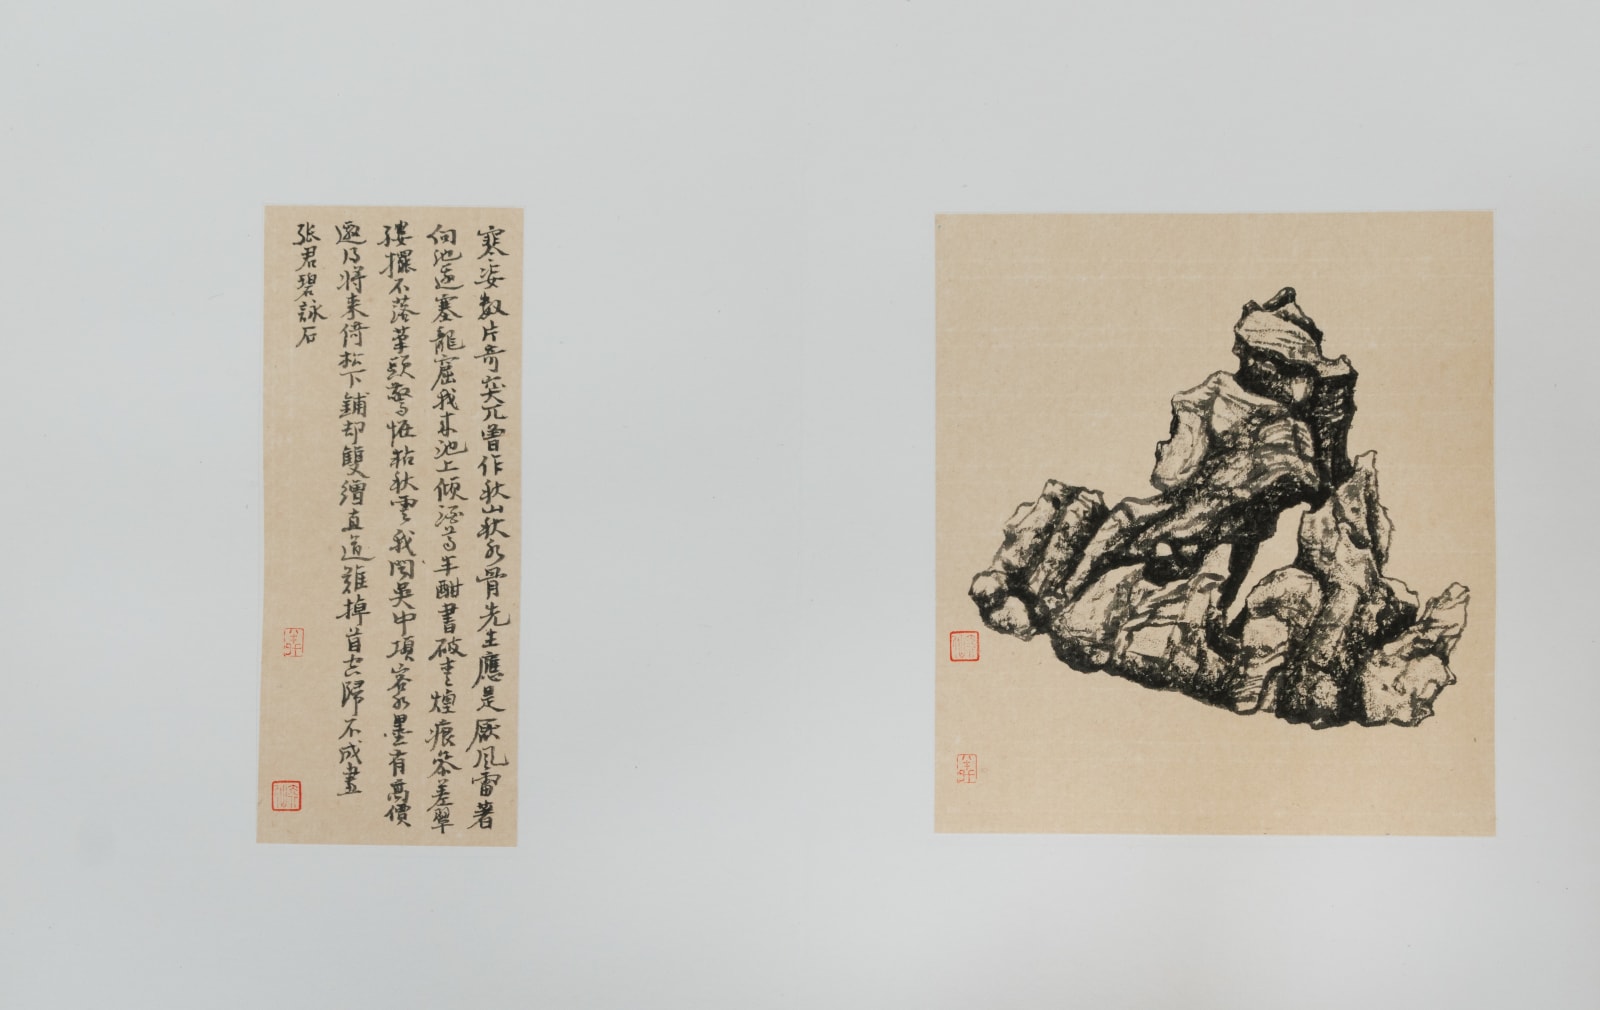 寒姿數片奇突兀曾作秋山秋水骨先生應是厭風雷著
向池邊塞龍窟我来池上傾酒尊半酣書破青煙痕參差翠
縷擺不落筆頭驚怪粘秋雲我聞吳中項容水墨有高價
邀得將来倚松下鋪却雙繒直道難掉首空歸不成畫
張君碧詠石